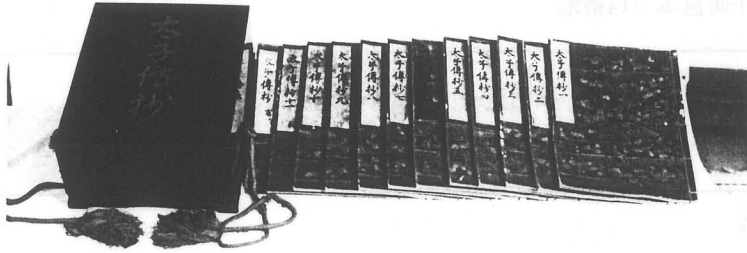 太子傳抄
太子傳抄一
太子傳抄二
太子傳抄三
太子傳抄四
太子傳抄五
太子傳抄七
太子傳抄八
太子傳抄九
太子傳抄十
太子傳抄十一